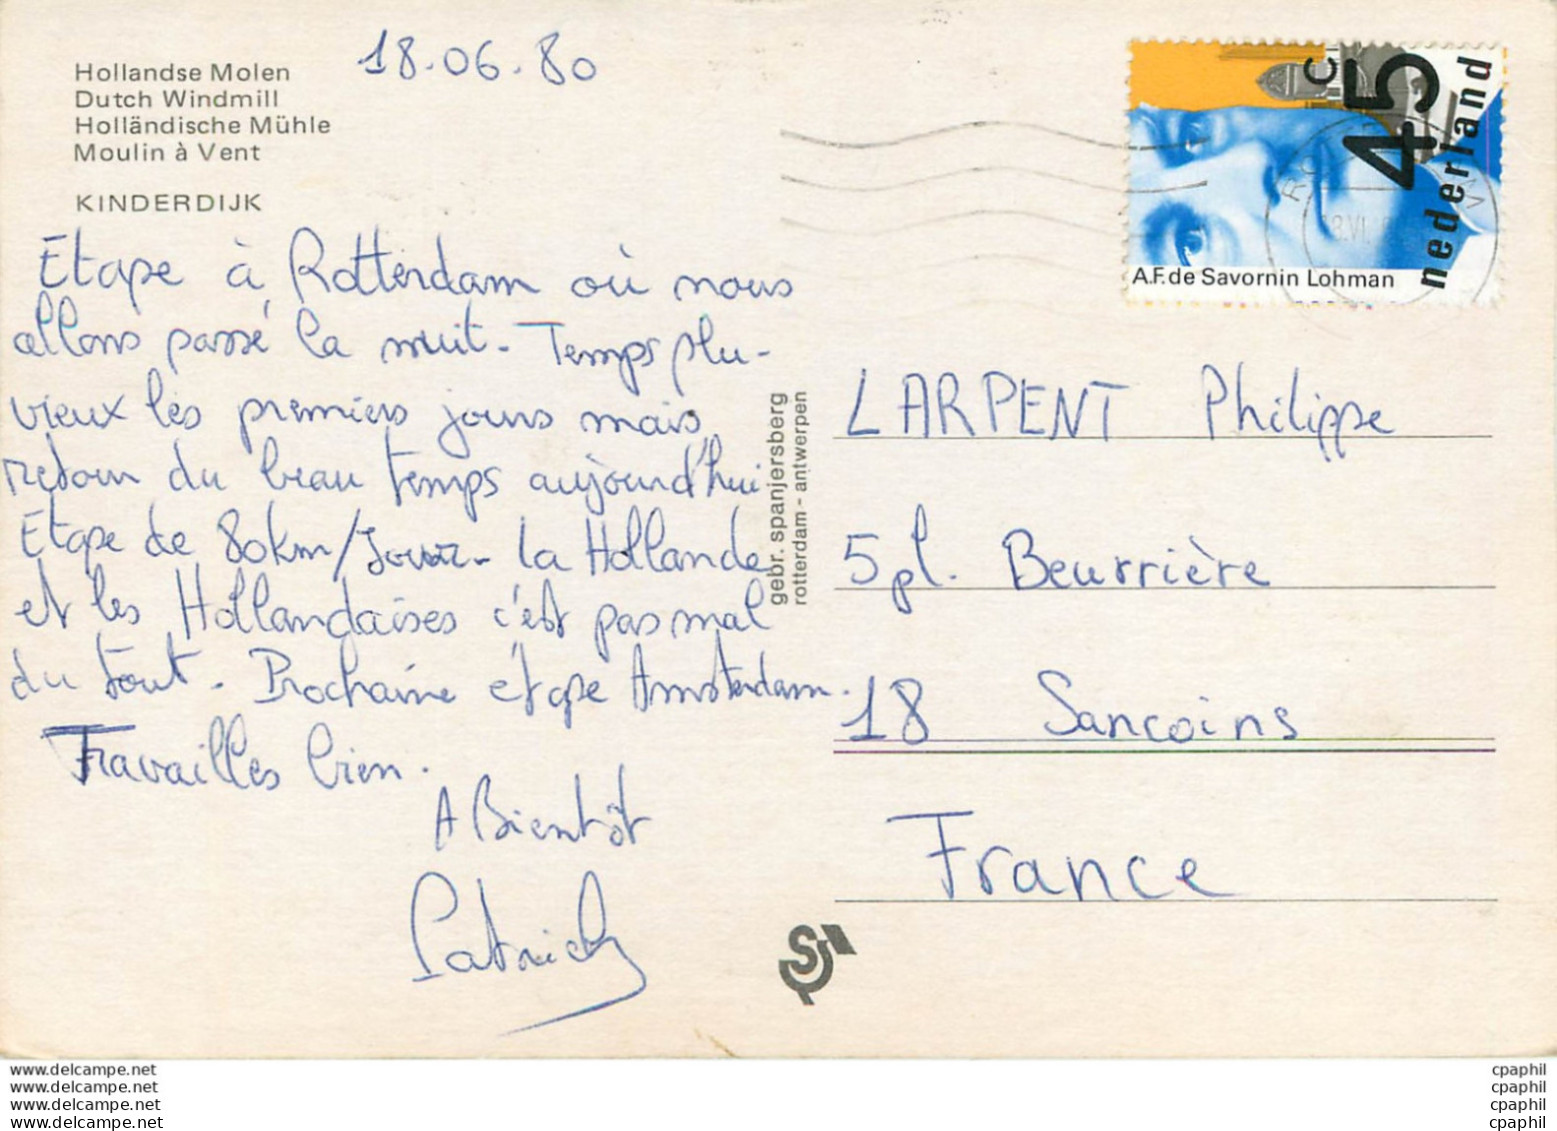 Hollandse Molen
Dutch Windmill
Holländische Mühle
Moulin à Vent
KINDERDIJK
18.06.80
Etape à Rotterdam où nous
allons passé la nuit. Temps plu-
vieux les premiers jours mais
retour du beau temps aujourd'hui
Etape de 80km/Jour. la Hollande
et les Hollandaises c'est pas mal
du tout. Prochaine étape Amsterdam.
Travailles bien.
A Bientôt
Patrick
gebr. spanjersberg
rotterdam - antwerpen
c 45
nederland
A.F. de Savornin Lohman
LARPENT Philippe
5 pl. Beurrière
18 Sancoins
France
www.delcampe.net
www.delcampe.net
www.delcampe.net
www.delcampe.net
cpaphil
cpaphil
cpaphil
cpaphil